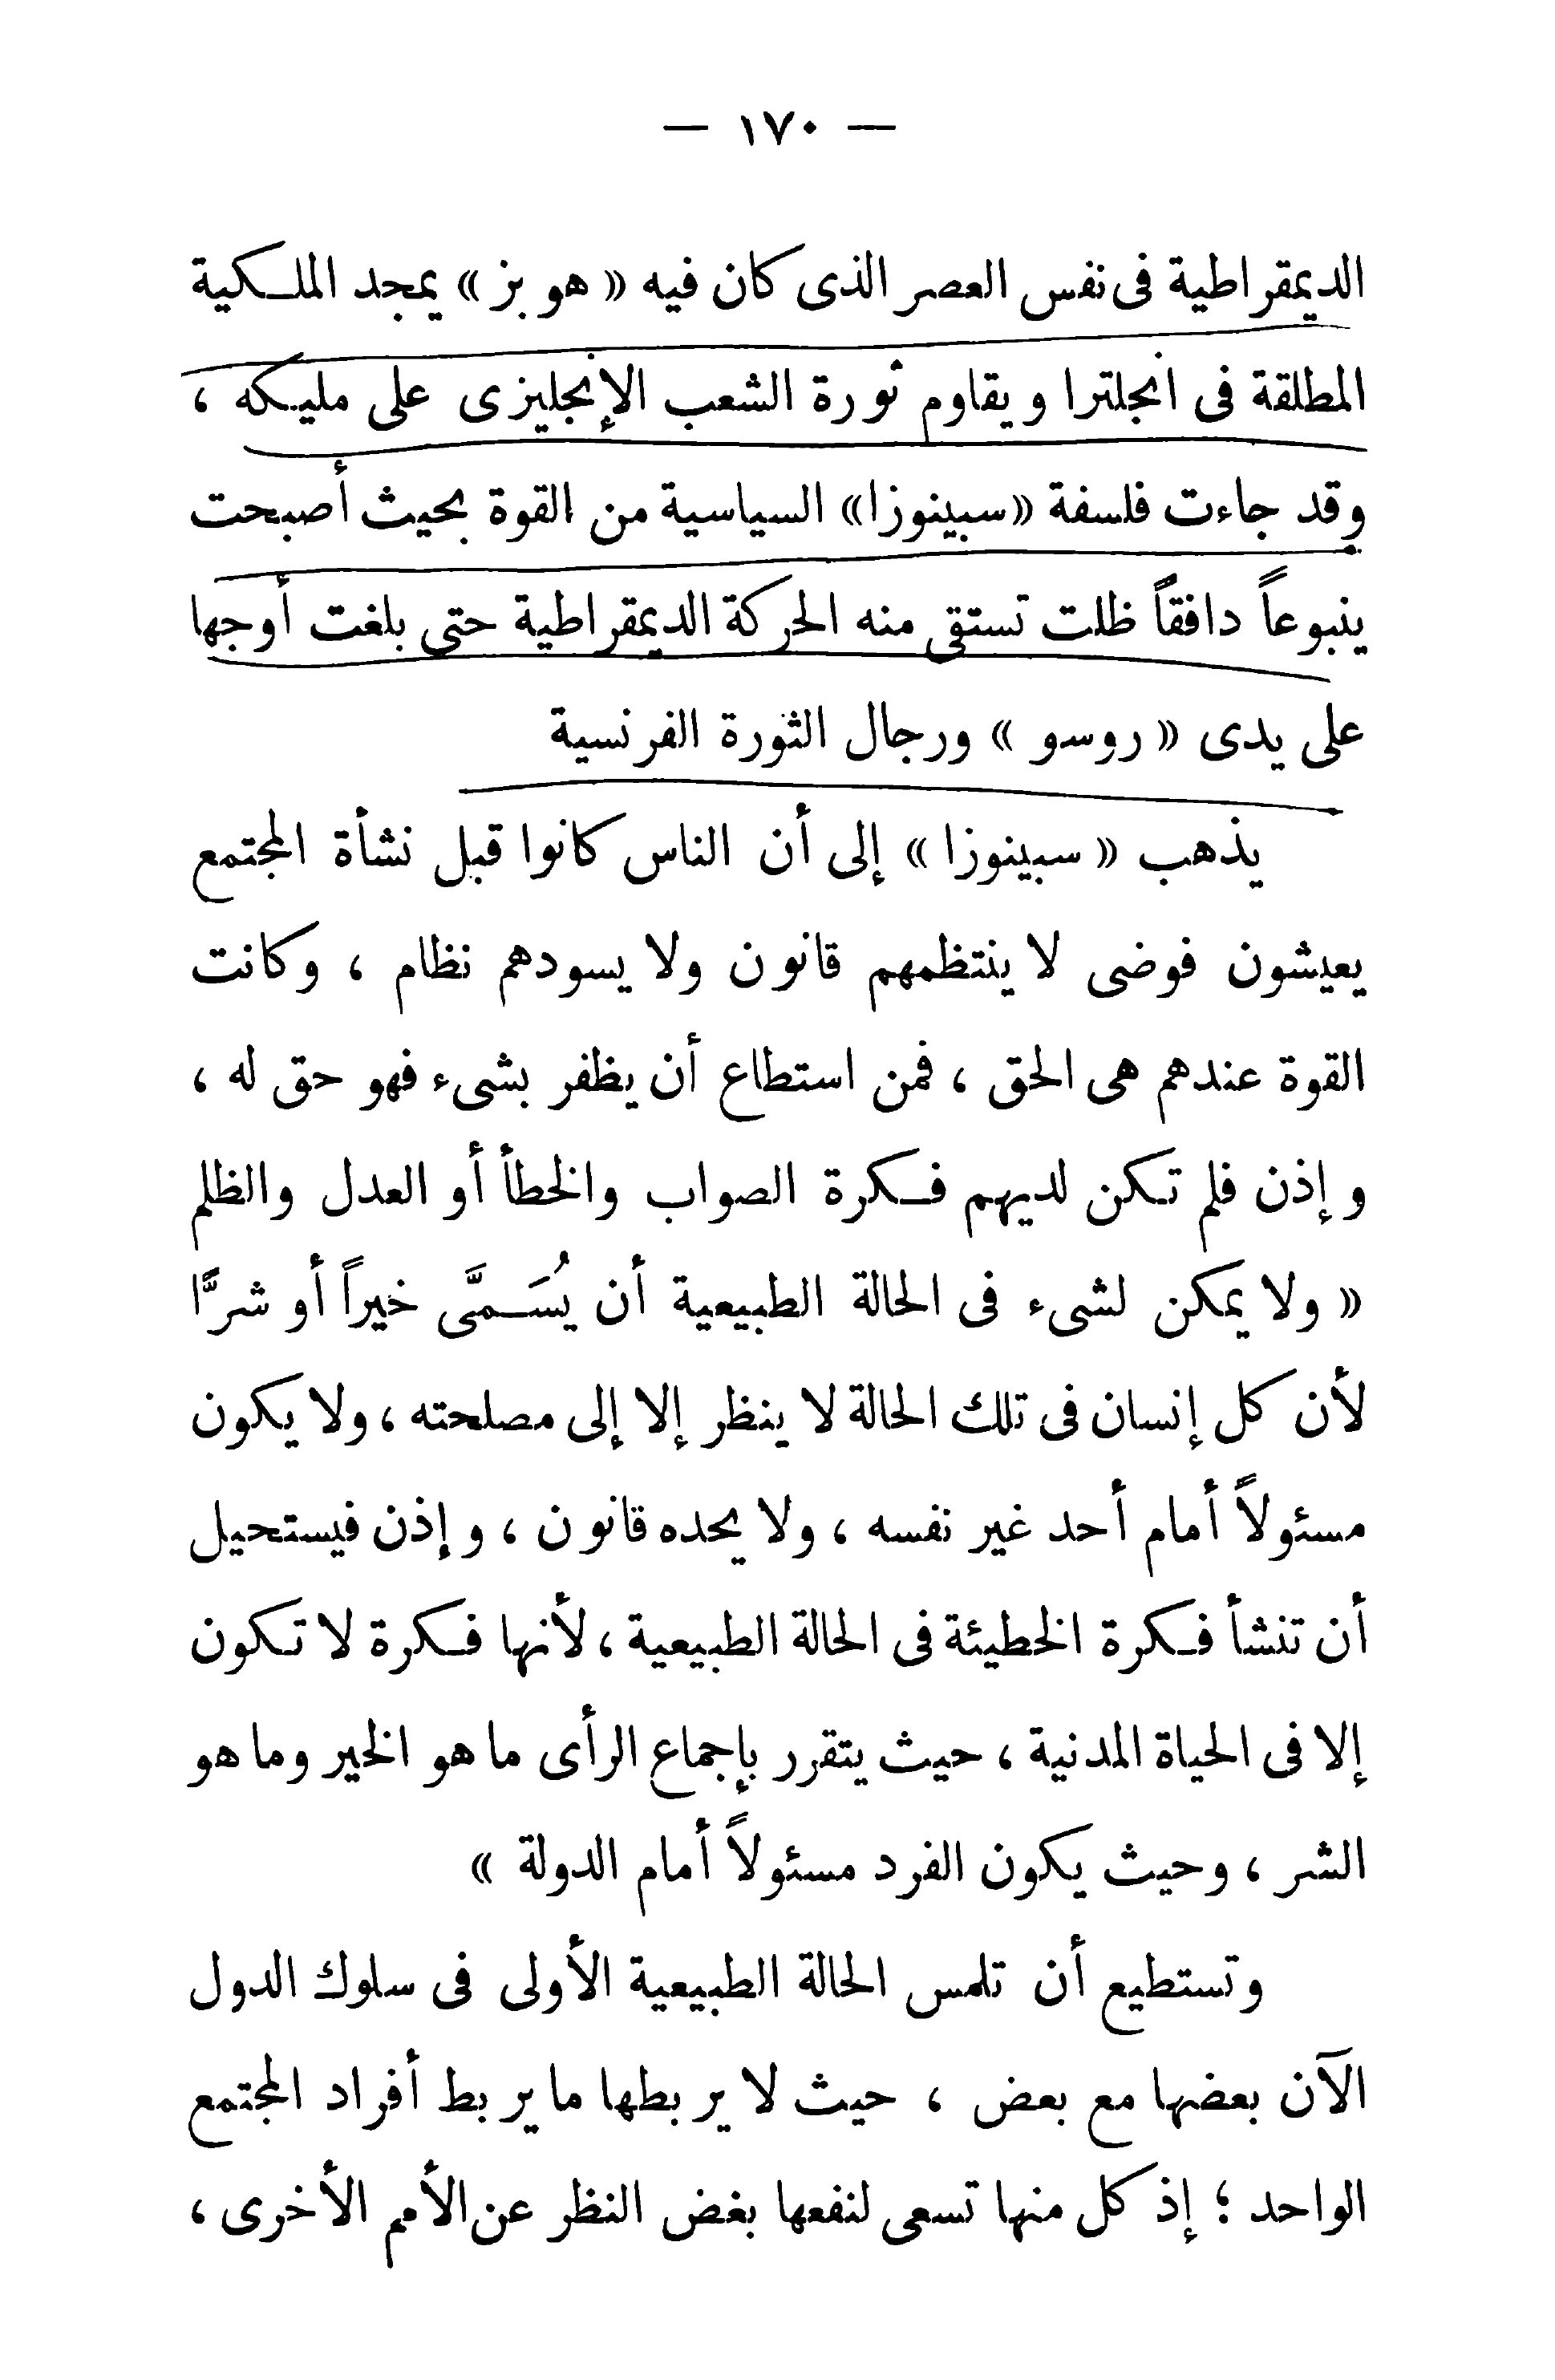 — ١٧٠ —
الديمقراطية فى نفس العصر الذى كان فيه « هوبز » يمجد الملكية
المطلقة فى انجلترا ويقاوم ثورة الشعب الإنجليزى على مليكه ،
وقد جاءت فلسفة «سبينوزا» السياسية من القوة بحيث أصبحت
ينبوعاً دافقاً ظلت تستقى منه الحركة الديمقراطية حتى بلغت أوجها
على يدى « روسو » ورجال الثورة الفرنسية
يذهب « سبينوزا » إلى أن الناس كانوا قبل نشأة المجتمع
يعيشون فوضى لا ينتظمهم قانون ولا يسودهم نظام ، وكانت
القوة عندهم هى الحق ، فمن استطاع أن يظفر بشىء فهو حق له ،
وإذن فلم تكن لديهم فكرة الصواب والخطأ أو العدل والظلم
« ولا يمكن لشىء فى الحالة الطبيعية أن يُسَمَّى خيراً أو شرًّا
لأن كل إنسان فى تلك الحالة لا ينظر إلا إلى مصلحته ، ولا يكون
مسئولاً أمام أحد غير نفسه ، ولا يحده قانون ، وإذن فيستحيل
أن تنشأ فكرة الخطيئة فى الحالة الطبيعية ، لأنها فكرة لا تكون
إلا فى الحياة المدنية ، حيث يتقرر بإجماع الرأى ما هو الخير وما هو
الشر ، وحيث يكون الفرد مسئولاً أمام الدولة »
وتستطيع أن تلمس الحالة الطبيعية الأولى فى سلوك الدول
الآن بعضها مع بعض ، حيث لا يربطها ما يربط أفراد المجتمع
الواحد ؛ إذ كل منها تسعى لنفعها بغض النظر عن الأمم الأخرى ،